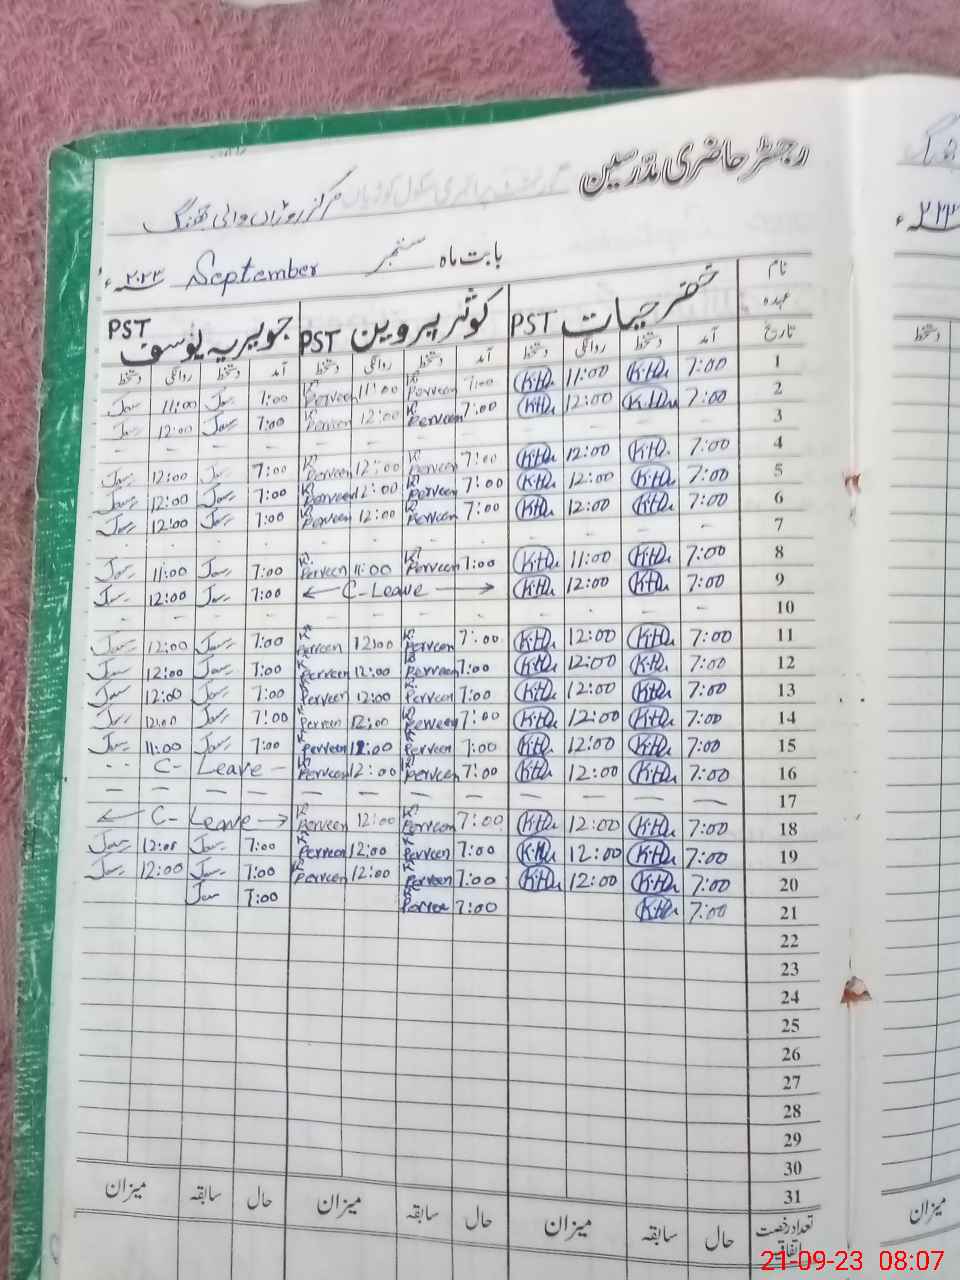 رجسٹر حاضری مدرسین
مرکز روڑاں والی جھنگ
بابت ماہ ستمبر September ۲۰۲۳ء
نام
عہدہ
خضر حیات PST کوثر پروین PST جویریہ یوسف PST
تاریخ آمد دستخط روانگی دستخط آمد دستخط روانگی دستخط آمد دستخط روانگی دستخط
1 7:00 K.H 11:00 K.H 7:00 K. Perveen 11:00 K. Perveen 7:00 Jav 11:00 Jav
2 7:00 K.H 12:00 K.H 7:00 K. Perveen 12:00 K. Perveen 7:00 Jav 12:00 Jav
3 - - - - - - - - - - - -
4 7:00 K.H 12:00 K.H 7:00 K. Perveen 12:00 K. Perveen 7:00 Jav 12:00 Jav
5 7:00 K.H 12:00 K.H 7:00 K. Perveen 12:00 K. Perveen 7:00 Jav 12:00 Jav
6 7:00 K.H 12:00 K.H 7:00 K. Perveen 12:00 K. Perveen 7:00 Jav 12:00 Jav
7 - - - - - - - -
8 7:00 K.H 11:00 K.H 7:00 K. Perveen 11:00 K. Perveen 7:00 Jav 11:00 Jav
9 7:00 K.H 12:00 K.H ← C-Leave → 7:00 Jav 12:00 Jav
10 - - - - - - - -
11 7:00 K.H 12:00 K.H 7:00 K. Perveen 12:00 K. Perveen 7:00 Jav 12:00 Jav
12 7:00 K.H 12:00 K.H 7:00 K. Perveen 12:00 K. Perveen 7:00 Jav 12:00 Jav
13 7:00 K.H 12:00 K.H 7:00 K. Perveen 12:00 K. Perveen 7:00 Jav 12:00 Jav
14 7:00 K.H 12:00 K.H 7:00 K. Perveen 12:00 K. Perveen 7:00 Jav 12:00 Jav
15 7:00 K.H 12:00 K.H 7:00 K. Perveen 12:00 K. Perveen 7:00 Jav 11:00 Jav
16 7:00 K.H 12:00 K.H 7:00 K. Perveen 12:00 K. Perveen - - C- Leave -
17 - - - - - - - - - - - -
18 7:00 K.H 12:00 K.H 7:00 K. Perveen 12:00 K. Perveen ← C- Leave →
19 7:00 K.H 12:00 K.H 7:00 K. Perveen 12:00 K. Perveen 7:00 Jav 12:00 Jav
20 7:00 K.H 12:00 K.H 7:00 K. Perveen 12:00 K. Perveen 7:00 Jav 12:00 Jav
21 7:00 K.H 7:00 K. Perveen 7:00 Jav
22
23
24
25
26
27
28
29
30
31
تعداد رخصت اتفاقیہ حال سابقہ میزان حال سابقہ میزان حال سابقہ میزان
دستخط
میزان
21-09-23 08:07